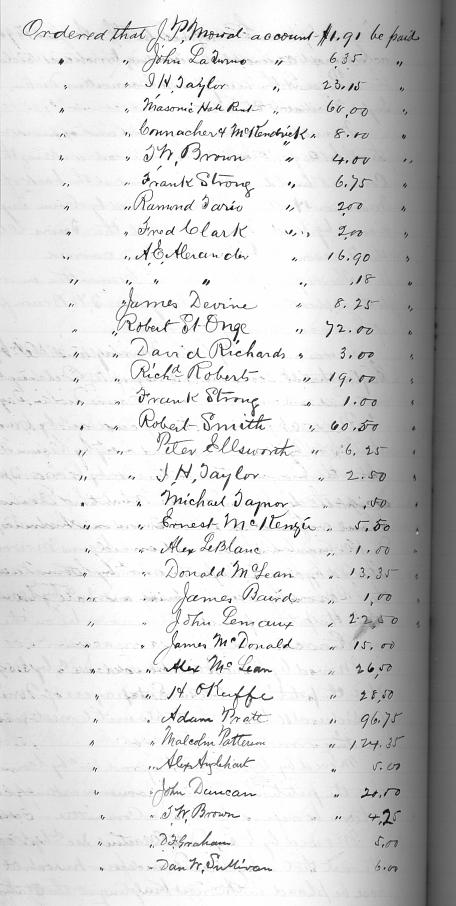 Ordered that J. P. Mowat account $1.91 be paid
" " John " 6.35 "
" " J. H. Taylor " 23.15 "
" " Masonic Hall Rent " 60.00 "
" " Connacher & McKendrick " 8.00 "
" " T. W. Brown " 4.00 "
" " Frank Strong " 6.75 "
" " Ramond " 2.00 "
" " Fred Clark " " 2.00 "
" " A. E. Alexander " 16.90 "
" " " " .18 "
" " James Devine " 8.25 "
" " Robert St Onge " 72.00 "
" " David Richards " 3.00 "
" " Richd Roberts " 19.00 "
" " Frank Strong " 1.00 "
" " Robert Smith " 60.50 "
" " Peter Ellsworth " 6.25 "
" " J. H. Taylor " 2.50 "
" " Michael " .50 "
" " Ernest McKenzie " 5.50 "
" " Alex LeBlanc " 1.00 "
" " Donald McLean " 13.35 "
" " James Baird " 1.00 "
" " John " 22.50 "
" " James McDonald " 15.00
" " Alex McLean " 26.50
" " H. O'Keiffe " 28.50
" " Adam Pratt " 96.75
" " Malcolm Patterson " 124.35
" " Alex " 5.00
" " John Duncan " 20.50
" " T. W. Brown " 4.25
" " D. F. Graham " 5.00
" " Dan W. Sullivan " 6.00